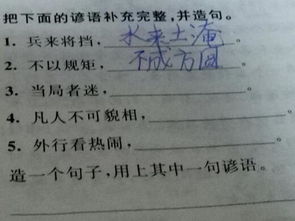 把下面的谚语补充完整,并造句。
1. 兵来将挡, 水来土淹。
2. 不以规矩, 不成方圆。
3. 当局者迷,
4. 凡人不可貌相,
5. 外行看热闹,
造一个句子,用上其中一句谚语。